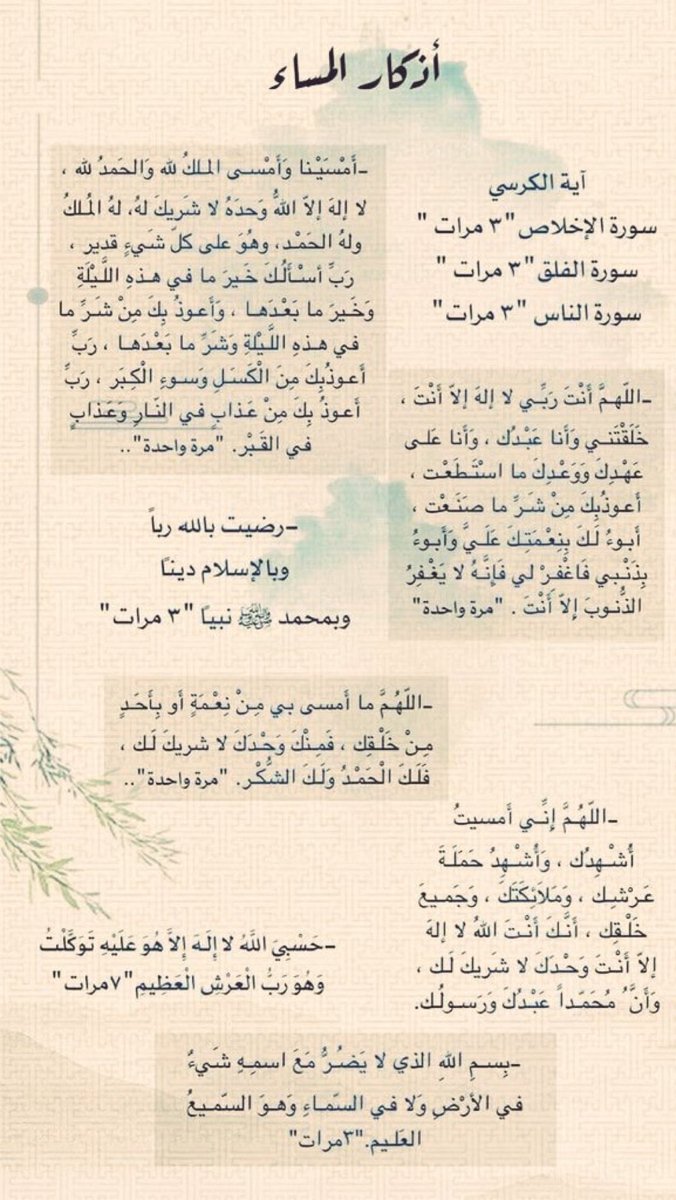 أذكار المساء
آية الكرسي
سورة الإخلاص "٣ مرات "
سورة الفلق "٣ مرات "
سورة الناس "٣ مرات"
-أَمْسَيْنا وَأَمْسـى المـلكُ لله وَالحَمدُ لله ،
لا إلهَ إلاّ اللّهُ وَحدَهُ لا شَريكَ لهُ، لهُ المُـلكُ
ولهُ الحَمْـد، وهُوَ على كلّ شَيءٍ قدير ،
رَبِّ أسْـأَلُـكَ خَـيرَ ما في هـذهِ اللَّـيْلَةِ
وَخَـيرَ ما بَعْـدَهـا ، وَأَعـوذُ بِكَ مِنْ شَـرِّ ما
في هـذهِ اللَّـيْلةِ وَشَرِّ ما بَعْـدَهـا ، رَبِّ
أَعـوذُبِكَ مِنَ الْكَسَـلِ وَسـوءِ الْكِبَـر ، رَبِّ
أَعـوذُ بِكَ مِنْ عَـذابٍ في النّـارِ وَعَـذابٍ
في القَـبْر. "مرة واحدة"..
-اللّهـمَّ أَنْتَ رَبِّـي لا إلهَ إلاّ أَنْتَ ،
خَلَقْتَنـي وَأَنا عَبْـدُك ، وَأَنا عَلـى
عَهْـدِكَ وَوَعْـدِكَ ما اسْتَـطَعْـت ،
أَعـوذُبِكَ مِنْ شَـرِّ ما صَنَـعْت ،
أَبـوءُ لَـكَ بِنِعْـمَتِـكَ عَلَـيَّ وَأَبـوءُ
بِذَنْـبي فَاغْفِـرْ لي فَإِنَّـهُ لا يَغْـفِرُ
الذُّنـوبَ إِلاّ أَنْتَ . "مرة واحدة"
-رضيت بالله رباً
وبالإسلام دينًا
وبمحمد ﷺ نبياً "٣ مرات"
-اللّهُـمَّ ما أَمسـى بي مِـنْ نِعْـمَةٍ أَو بِأَحَـدٍ
مِـنْ خَلْـقِك ، فَمِـنْكَ وَحْـدَكَ لا شريكَ لَـك ،
فَلَـكَ الْحَمْـدُ وَلَـكَ الشُّكْـر. "مرة واحدة"..
-اللّهُـمَّ إِنِّـي أَمسيتُ
أُشْـهِدُك ، وَأُشْـهِدُ حَمَلَـةَ
عَـرْشِـك ، وَمَلَائِكَتَكَ ، وَجَمـيعَ
خَلْـقِك ، أَنَّـكَ أَنْـتَ اللهُ لا إلهَ
إلاّ أَنْـتَ وَحْـدَكَ لا شَريكَ لَـك ،
وَأَنَّ ُ مُحَمّـداً عَبْـدُكَ وَرَسـولُـك.
-حَسْبِيَ اللَّهُ لا إِلَـهَ إِلاَّ هُوَ عَلَيْهِ تَوَكَّلْتُ
وَهُوَ رَبُّ الْعَرْشِ الْعَظِيمِ "٧مرات"
-بِسـمِ اللهِ الذي لا يَضُـرُّ مَعَ اسمِـهِ شَيءٌ
في الأرْضِ وَلا في السّمـاءِ وَهـوَ السّمـيعُ
العَلـيم."٣مرات"